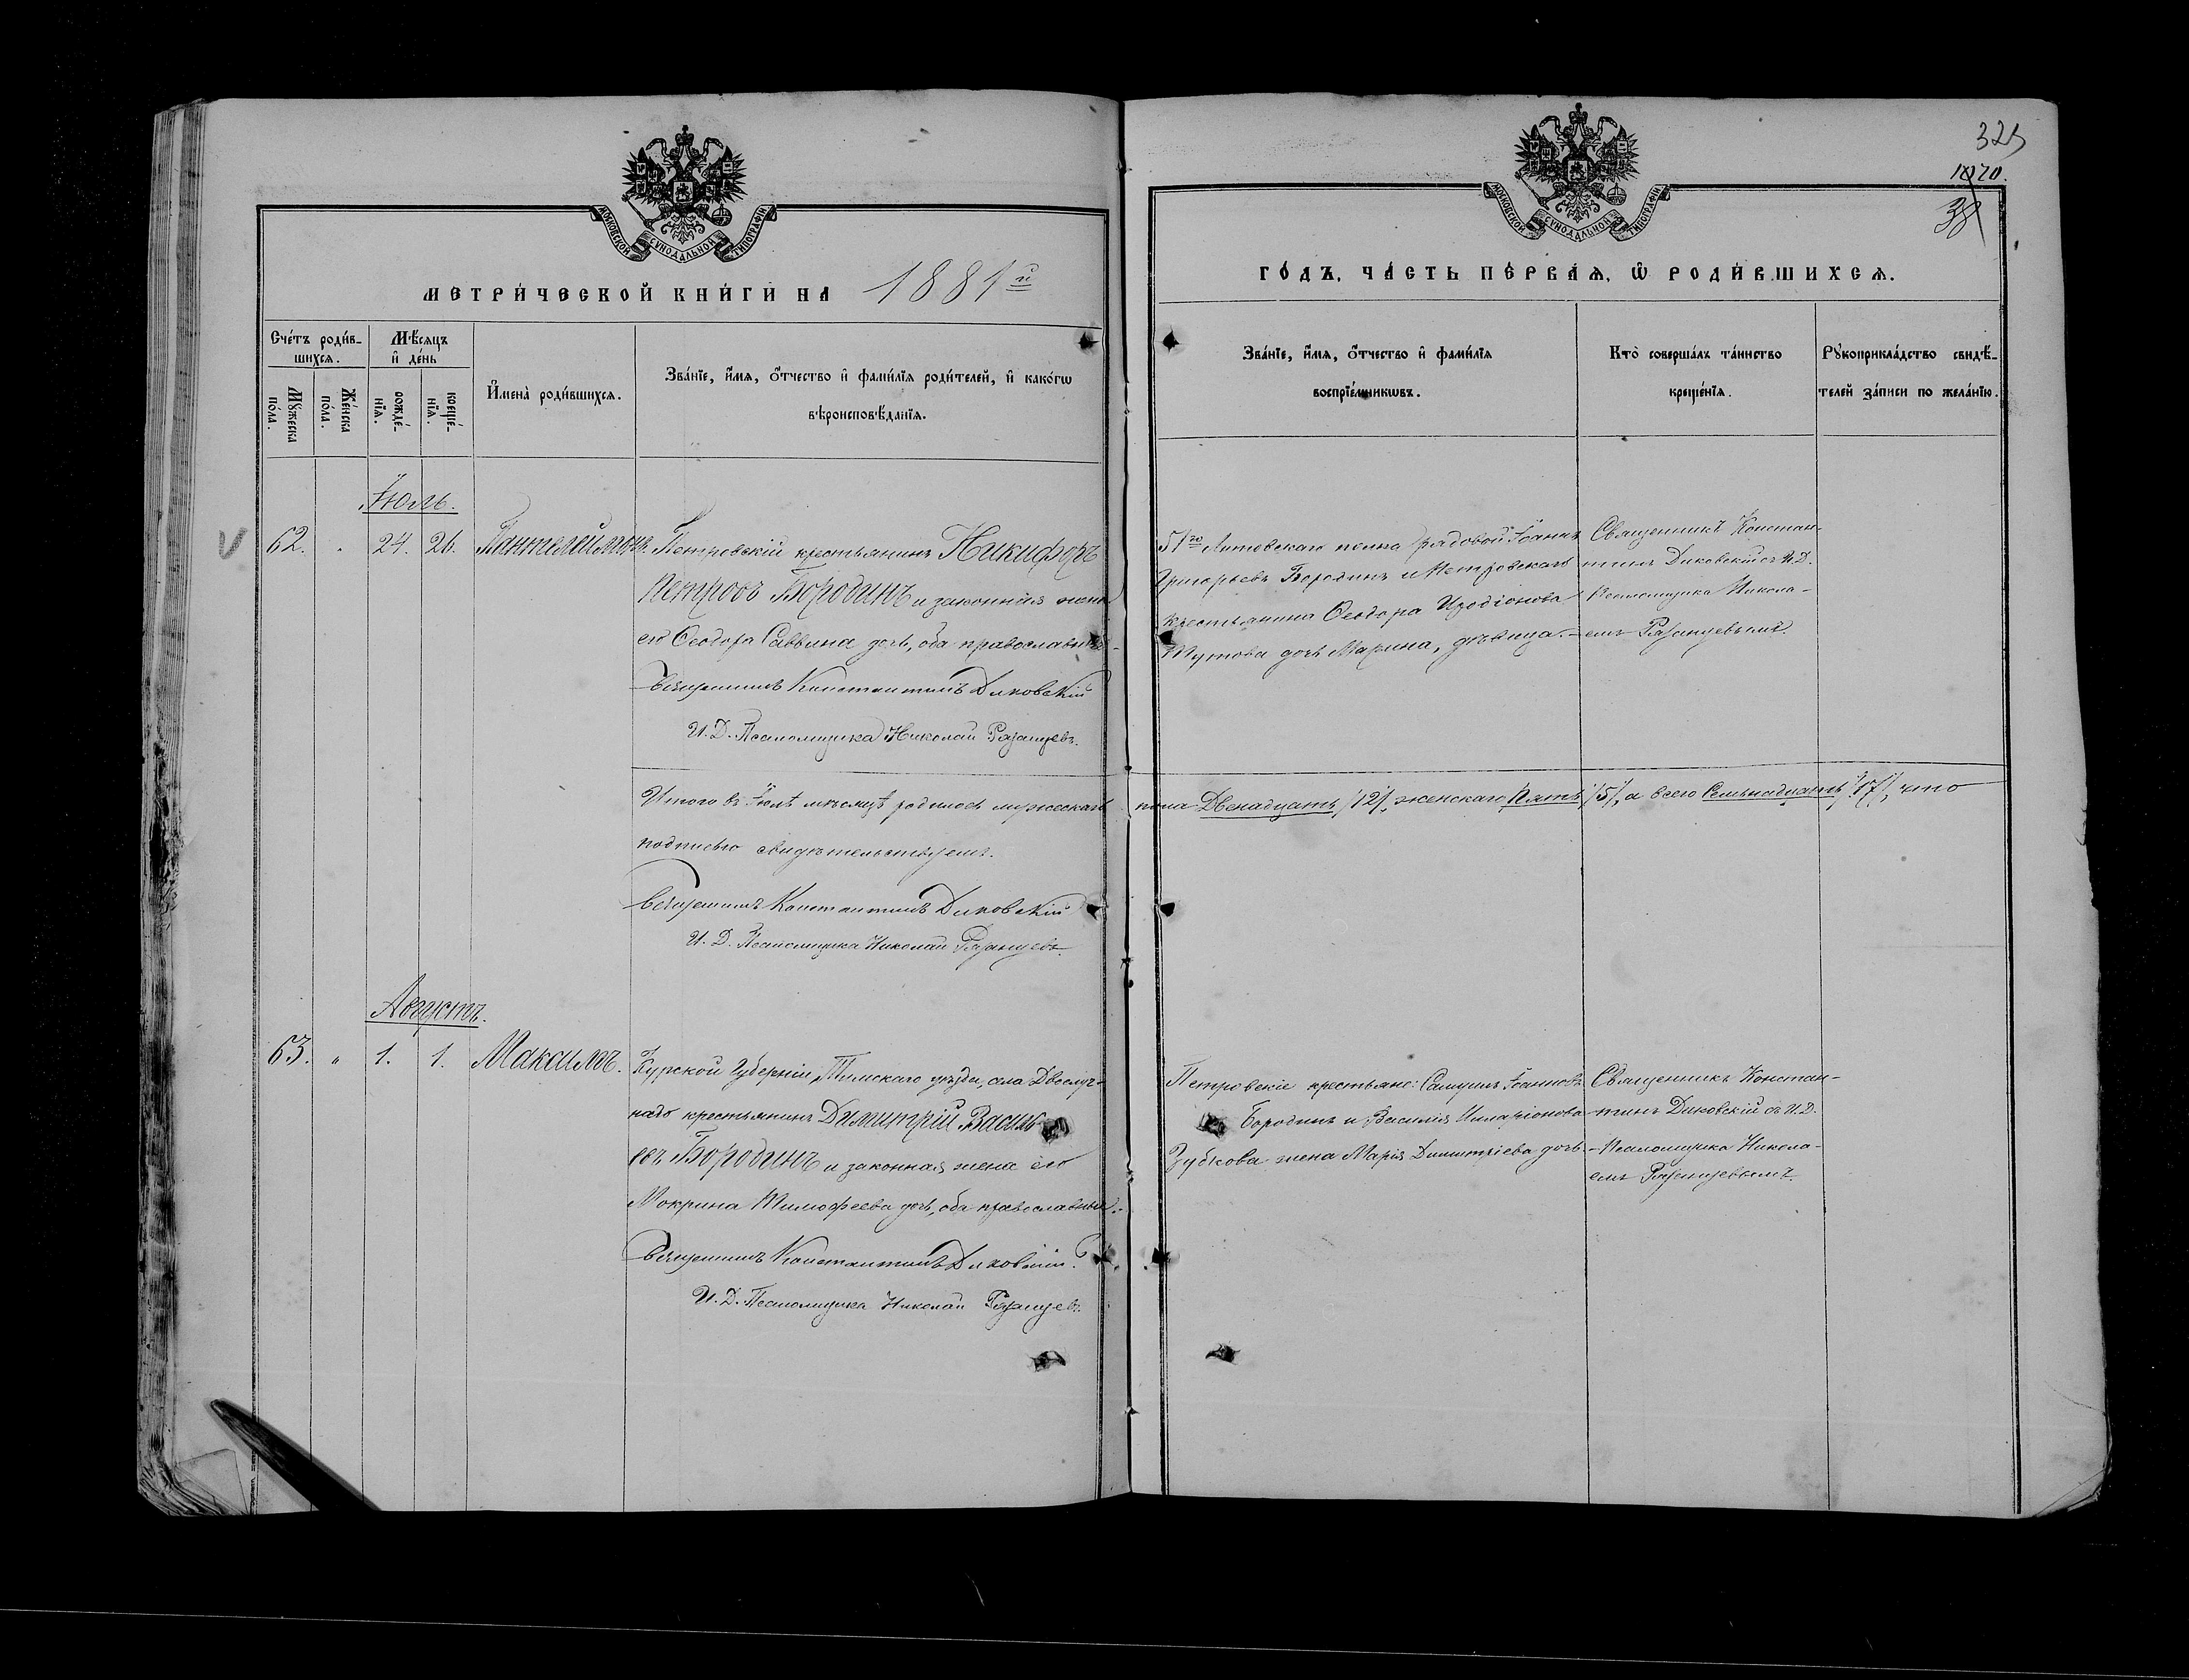 МОСКОВСКОЙ СѴНОДАЛЬНОЙ ТИПОГРАФІИ.
МЕТРИ́ЧЕСКОЙ КНИ́ГИ НА 1881й
Сче́тъ роди́в-
шихся.
Мѣ́сяцъ
и҆ де́нь
Мꙋ́жеска
по́ла.
Же́нска
по́ла.
рожде́-
нїѧ.
креще́-
нїѧ.
И҆мена̀ роди́вшихсѧ.
Зва́нїе, и҆́мѧ, ѻ҆́тчество и҆ фами́лїѧ роди́телей, и҆ како́гѡ
вѣроисповѣ́данїѧ.
Іюль.
62. " 24. 26. Пантелеймонъ.
Петровскій крестьянинъ Никифоръ
Петровъ Бородинъ и законная жена
его Ѳеодора Саввина дочь, оба православные.
Священникъ Константинъ Диковскій
И. Д. Псаломщика Николай Рязанцевъ.
Итого въ Іюлѣ мѣсяцѣ родилось мужескаго
подписью свидѣтельствуемъ.
Священникъ Константинъ Диковскій
И. Д. Псаломщика Николай Рязанцевъ.
Августъ.
63. " 1. 1. Максимъ.
Курской Губерніи, Тимскаго уѣзда, села Двоелуч-
наго крестьянинъ Димитрій Василь-
евъ Бородинъ и законная жена его
Мокрина Тимофеева дочь, оба православные.
Священникъ Константинъ Диковскій.
И. Д. Псаломщика Николай Рязанцевъ.
325
1020.
38
МОСКОВСКОЙ СѴНОДАЛЬНОЙ ТИПОГРАФІИ.
ГО́ДЪ, ЧА́СТЬ ПЕ́РВАЯ, Ѡ҆ РОДИ́ВШИХСЯ.
Зва́нїе, и҆́мѧ, ѻ҆́тчество и҆ фами́лїѧ
воспрїе́мникѡвъ.
Кто̀ соверша́лъ та́инство
креще́нїѧ.
Рꙋкоприкла́дство свидѣ́-
телей за́писи по жела́нїю.
51го Литовскаго полка рядовой Іоаннъ
Григорьевъ Бородинъ и Петровскаго
крестьянина Ѳеодора Иродіонова
Шутова дочь Марина, дѣвица.
Священникъ Констан-
тинъ Диковскій съ И.Д.
Псаломщика Никола-
емъ Рязанцевымъ.
пола Двенадцать /12/, женскаго Пять /5/, а всего Семьнадцать /17/, что
Петровскіе крестьяне: Самуилъ Іоанновъ
Бородинъ и Василія Иларіонова
Зубкова жена Марія Димитріева дочь.
Священникъ Констан-
тинъ Диковскій съ И.Д.
Псаломщика Никола-
емъ Рязанцевымъ.